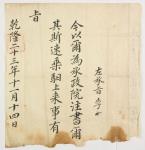 今以爾爲承政院注書爾
其斯速乘馹上來事有
旨
乾隆二十三年十一月十四日
左承旨